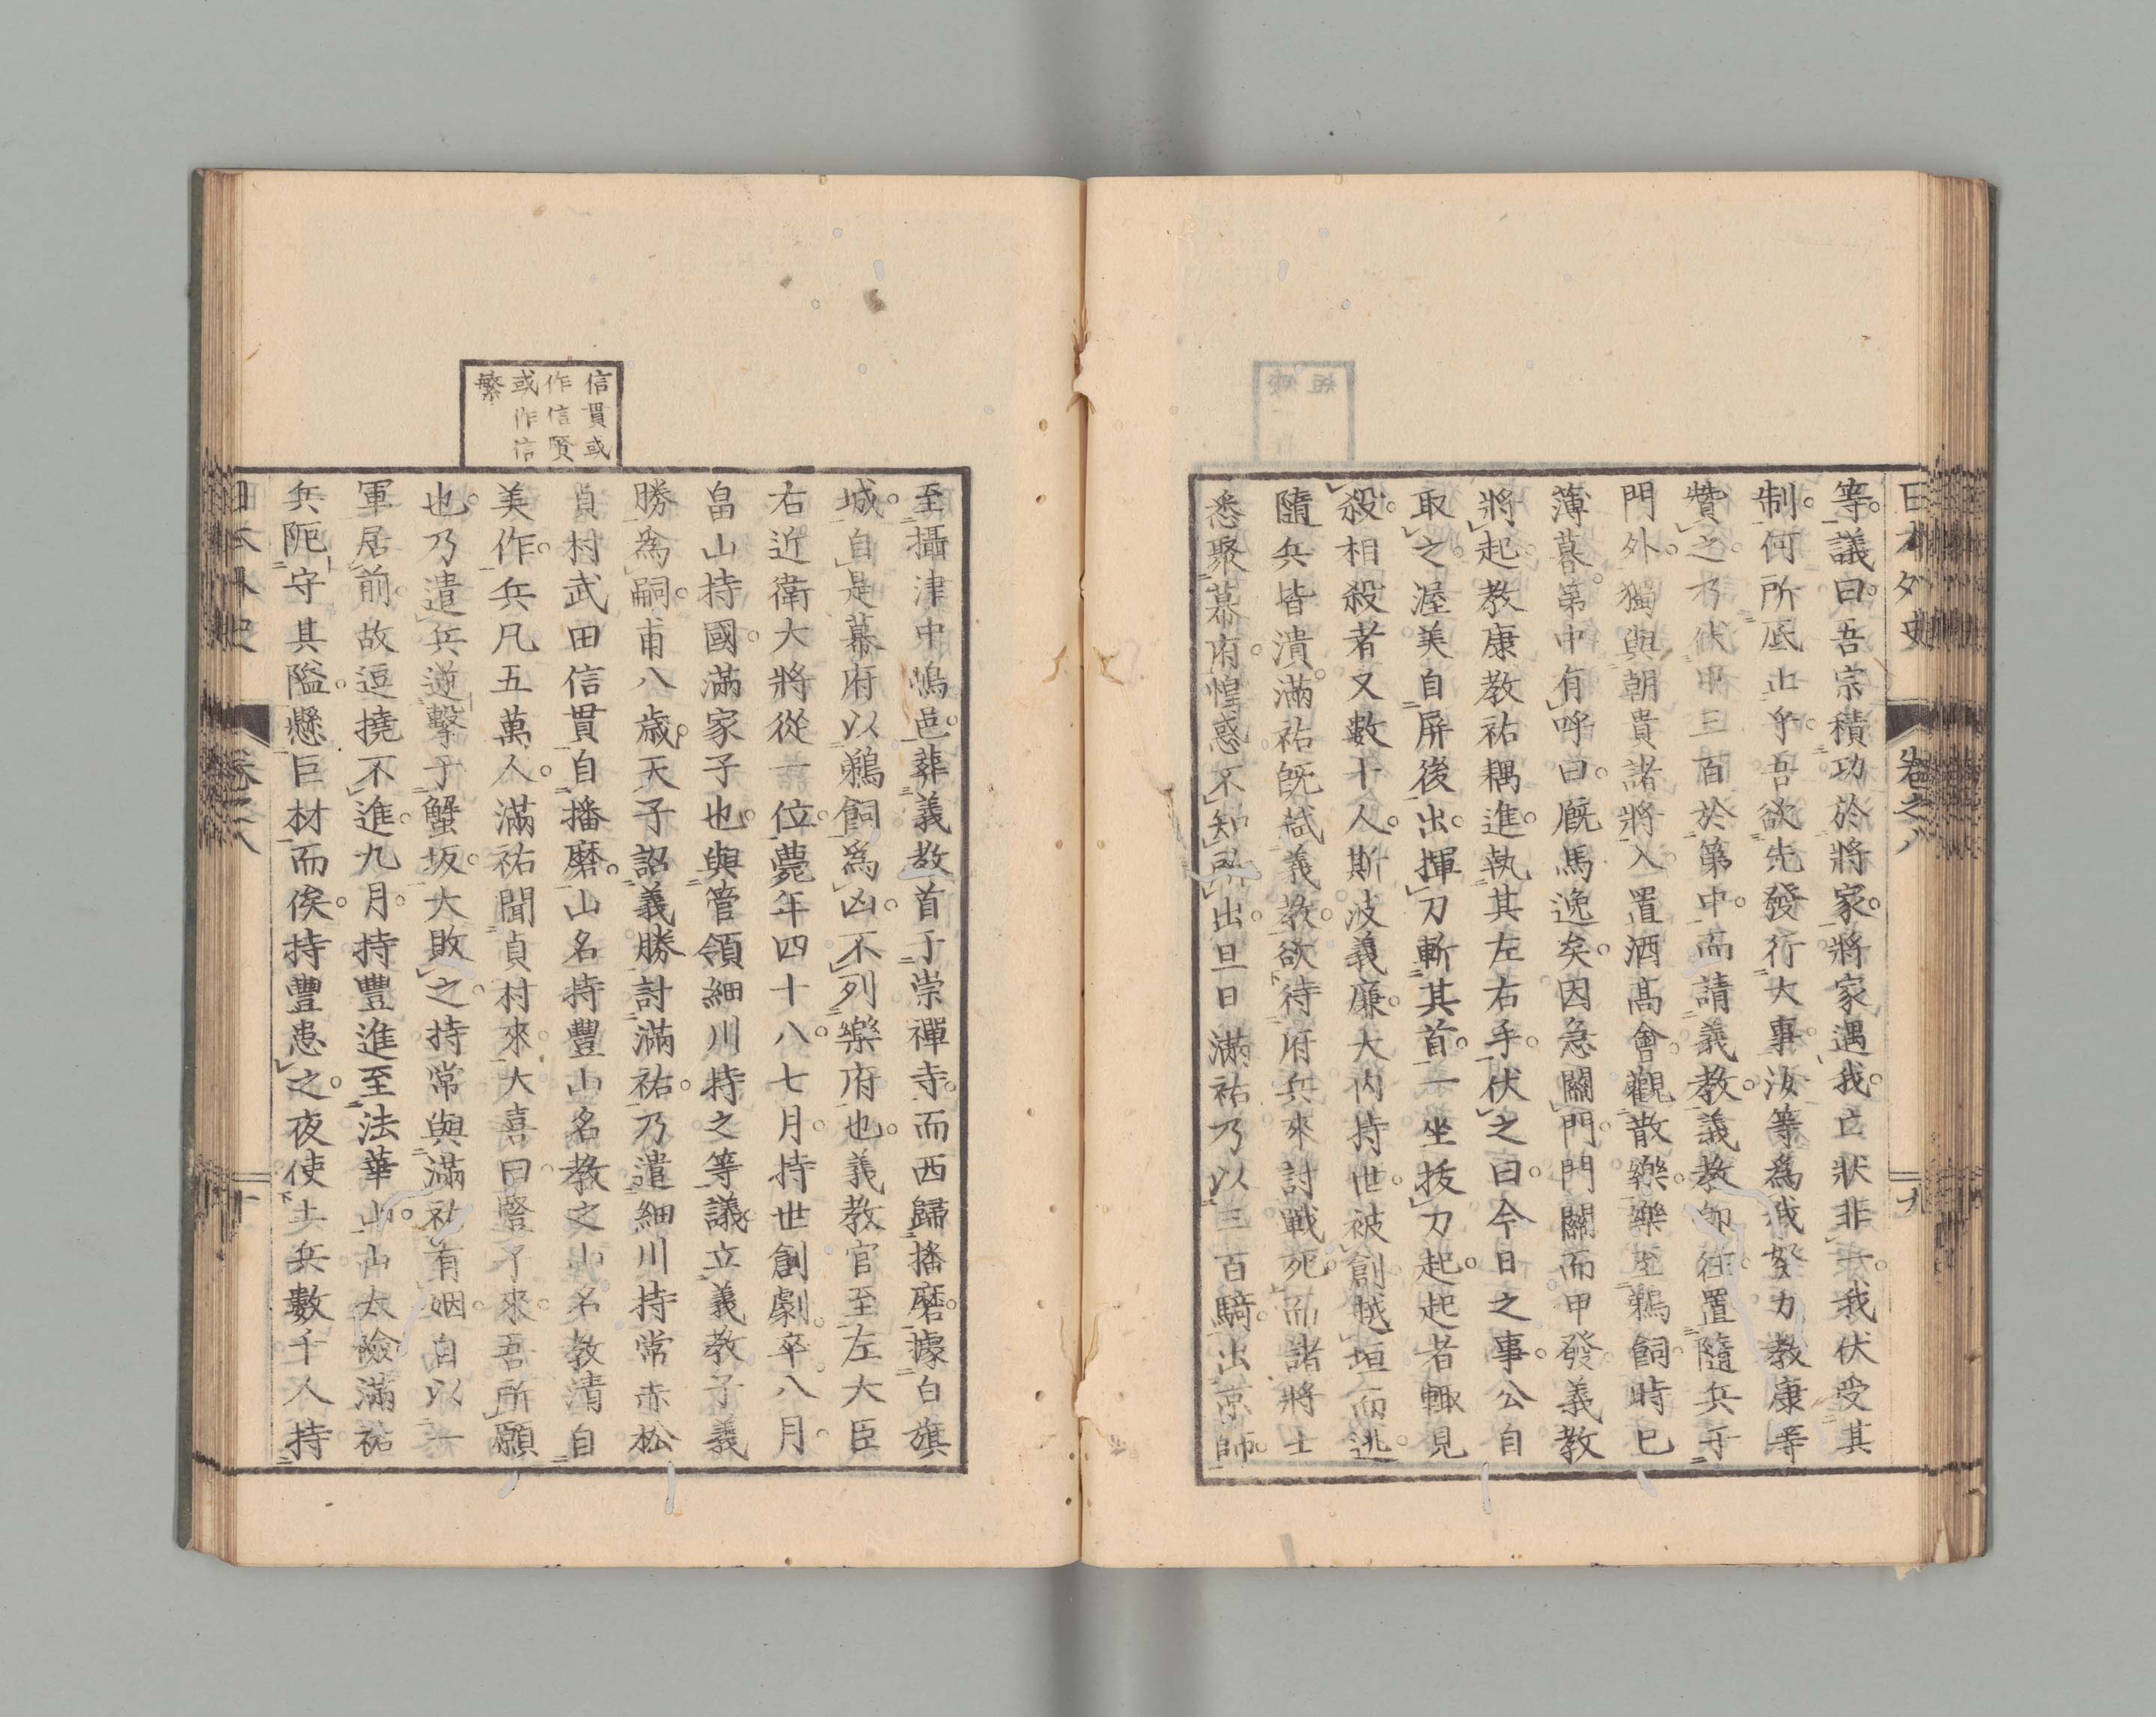 日本外史
卷之八
九
等議曰。吾宗積功於將家。將家遇我。亡狀非一。我伏受其
制。何所底止乎。吾欲先發行大事。汝等為我努力。教康等
贊之。乃伏甲三百於第中。而請義教。義教卽往。置隨兵于
門外。獨與朝貴諸將入。置酒高會。觀散樂。樂至鵜飼。時已
薄暮。第中有呼曰。厩馬逸矣。因急關門。門關而甲發。義教
將起。教康教祐耦進。執其左右手。伏之曰。今日之事。公自
取之。渥美自屏後出。揮刀斬其首。一坐拔刀起。起者輒見
殺。相殺者又數十人。斯波義廉。大內持世。被創越垣而逃。
隨兵皆潰。滿祐旣弑義教。欲待府兵來討戰死。而諸將士
悉聚幕府。惶惑不知所出。旦日滿祐乃以三百騎。出京師。
至攝津中嶋邑。葬義教首于崇禪寺。而西歸播磨。據白旗
城。自是幕府以鵜飼為凶。不列樂府也。義教官至左大臣
右近衛大將從一位。薨年四十八。七月。持世創劇。卒。八月。
畠山持國。滿家子也。與管領細川持之等議。立義教子義
勝為嗣。甫八歲。天子詔義勝討滿祐。乃遣細川持常赤松
貞村武田信貫自播磨。山名持豐山名教之山名教清自
美作。兵凡五萬人。滿祐聞貞村來。大喜曰。豎子來。吾所願
也。乃遣兵逆擊于蟹坂。大敗之。持常與滿祐有姻。自以一
軍居前。故逗撓不進。九月。持豐進至法華山。山太險。滿祐
兵阨守其隘。懸巨材而俟。持豐患之。夜使步兵數千人持
信貫或
作信賢
或作信
繁
日本外史
卷之八